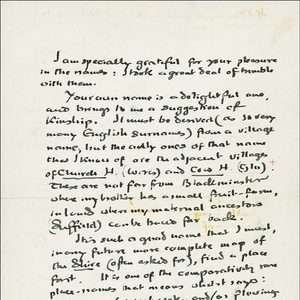 I am specially grateful for your pleasure
in the names: I took a great deal of trouble
with them.
Your own name is a delightful one,
and brings to me a suggestion of
Kinship. It must be derived (as so very
many English surnames) from a village
name, but the only ones of that name
that I know of are the adjacent villages
of Church H. (Worcs) and Cow H. (Glos)
These are not far from Blackminster
where my brother has a small fruit-farm,
in land where my maternal ancestors
(Suffield) can be found far back.
It is such a good name that I must,
in any future more complete map of
the Shire (often asked for), find a place
for it. It is one of the comparatively rare
place-names that means what it says: